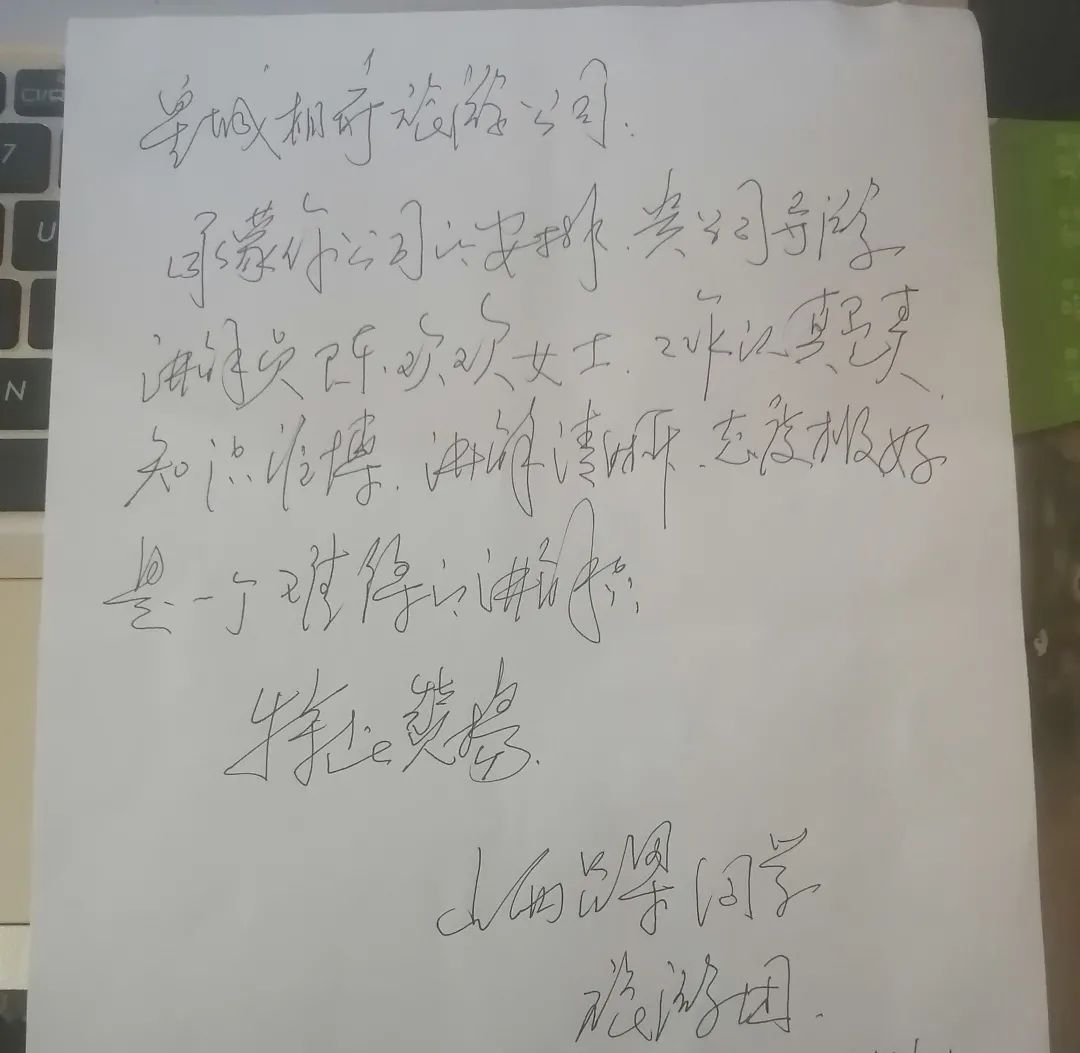 皇城相府旅游公司.
承蒙你公司的安排.贵公司导游
讲解员陈欢欢女士.工作认真负责.
知识渊博.讲解清晰.态度极好
是一个难得的讲解员.
特此赞扬.
山西吕梁同学
旅游团.